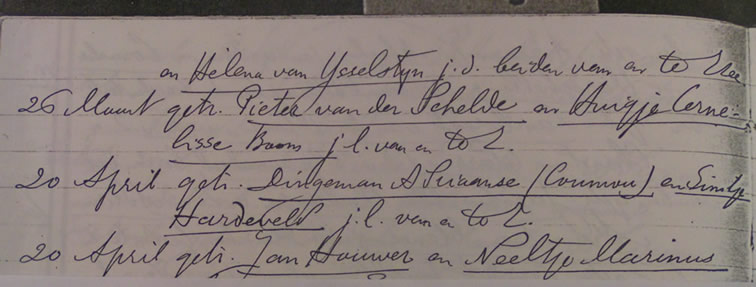 en Helena van Ysselstyn j.d. beiden van en te
26 Maart getr. Pieter van der Schelde en Huigje Corne-
lisse Boom j.l. van en te Z.
20 April getr. Dingeman A (Coumou) en
Hardeveld j.l. van en te Z.
20 April getr. Jan Houwer en Neeltje Marinus